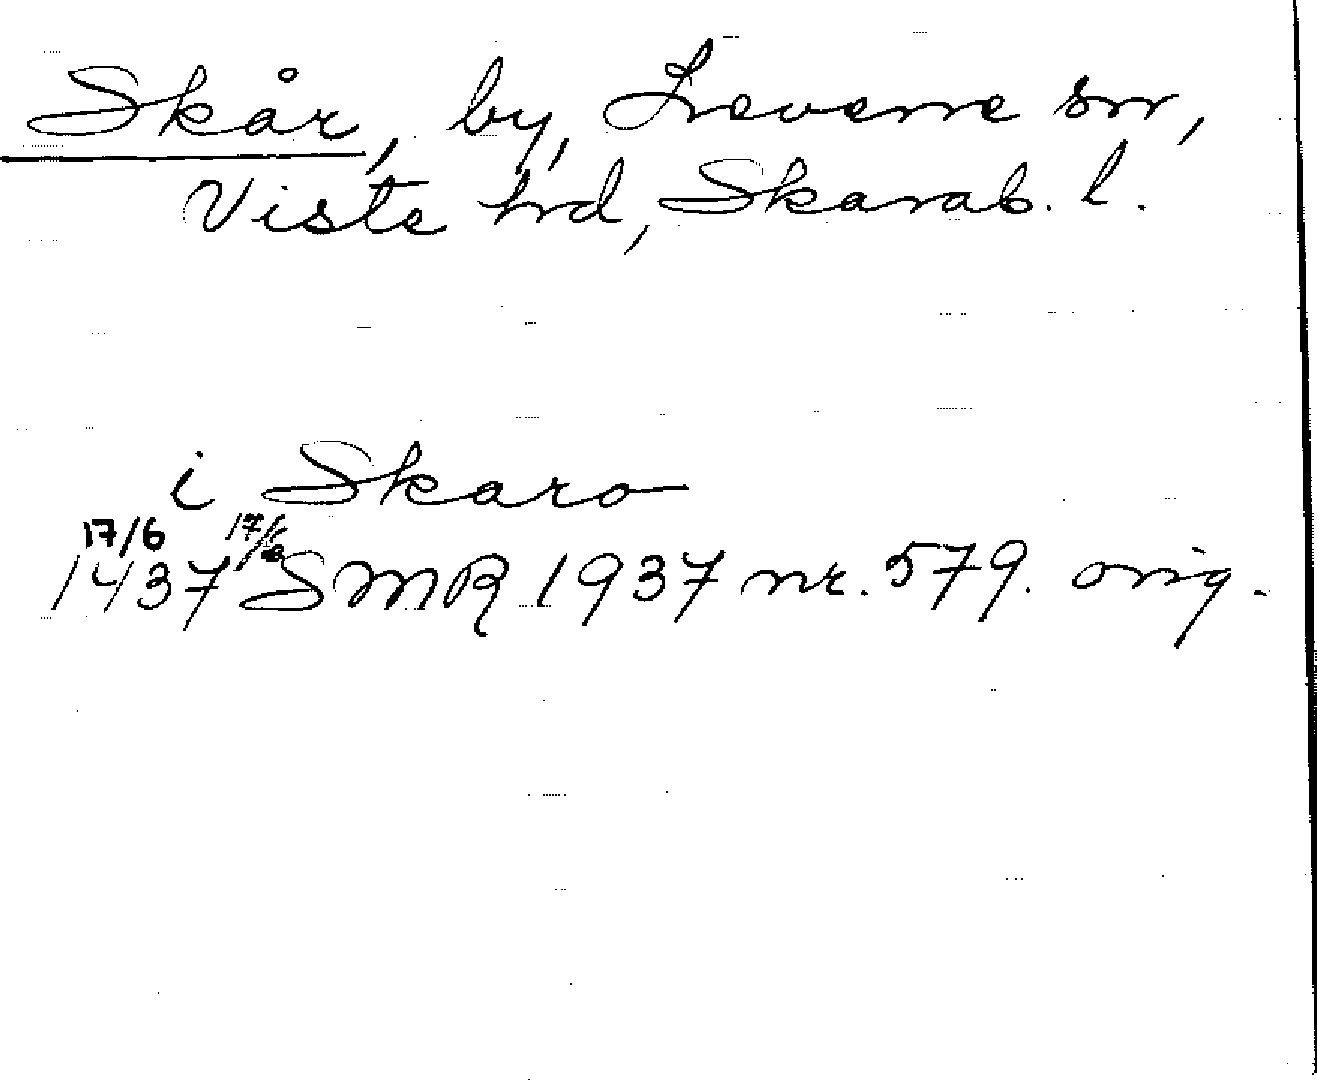 Skår, by, Levene sn,
Viste hrd, Skarab. l.
i Skaro
17/6 17/6
1437 SMR 1937 nr. 579. orig.